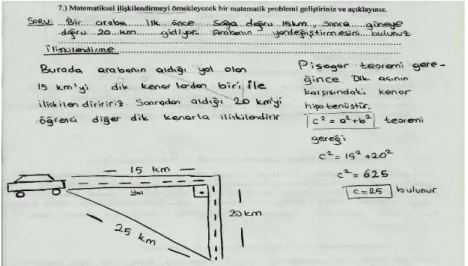 7.) Matematiksel ilişkilendirmeyi örnekleyecek bir matematik problemi geliştiriniz ve açıklayınız.
Soru: Bir araba ilk önce sağa doğru 15km, sonra güneye
doğru 20 km gidiyor. Arabanın yerdeğiştirmesini bulunuz
İlişkilendirme
Burada arabanın aldığı yol olan
15 km'yi dik kenarlardan biri ile
ilişkilendiririz. Sonradan aldığı 20 km'yi
öğrenci diğer dik kenarla ilişkilendirir.
Pisagor teoremi gere-
ğince Dik açının
karşısındaki kenar
hipotenüstür.
c² = a²+b² teoremi
gereği
c² = 15² +20²
c² = 625
c=25 bulunur
15 km
20 km
25 km